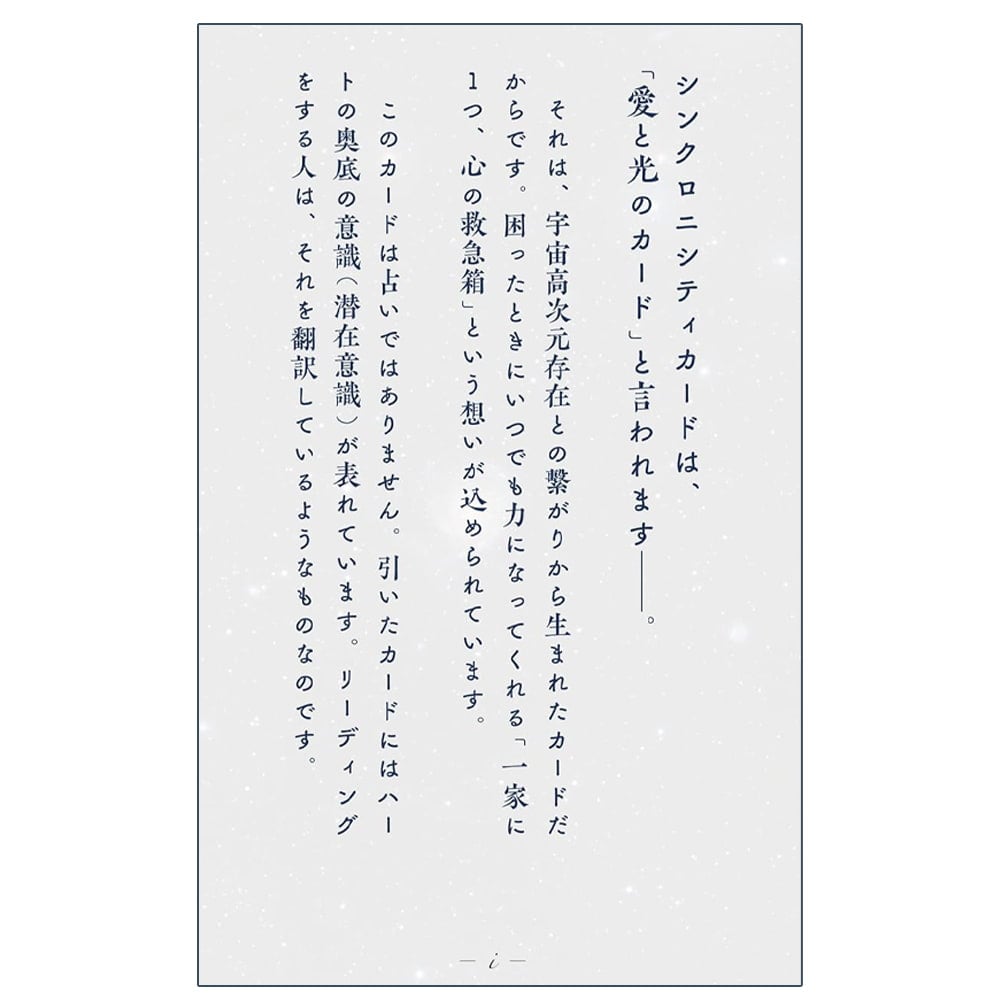 シンクロニシティカードは、
「愛と光のカード」と言われます――。
それは、宇宙高次元存在との繋がりから生まれたカードだ
からです。困ったときにいつでも力になってくれる「一家に
１つ、心の救急箱」という想いが込められています。
このカードは占いではありません。引いたカードにはハー
トの奥底の意識（潜在意識）が表れています。リーディング
をする人は、それを翻訳しているようなものなのです。
― i ―